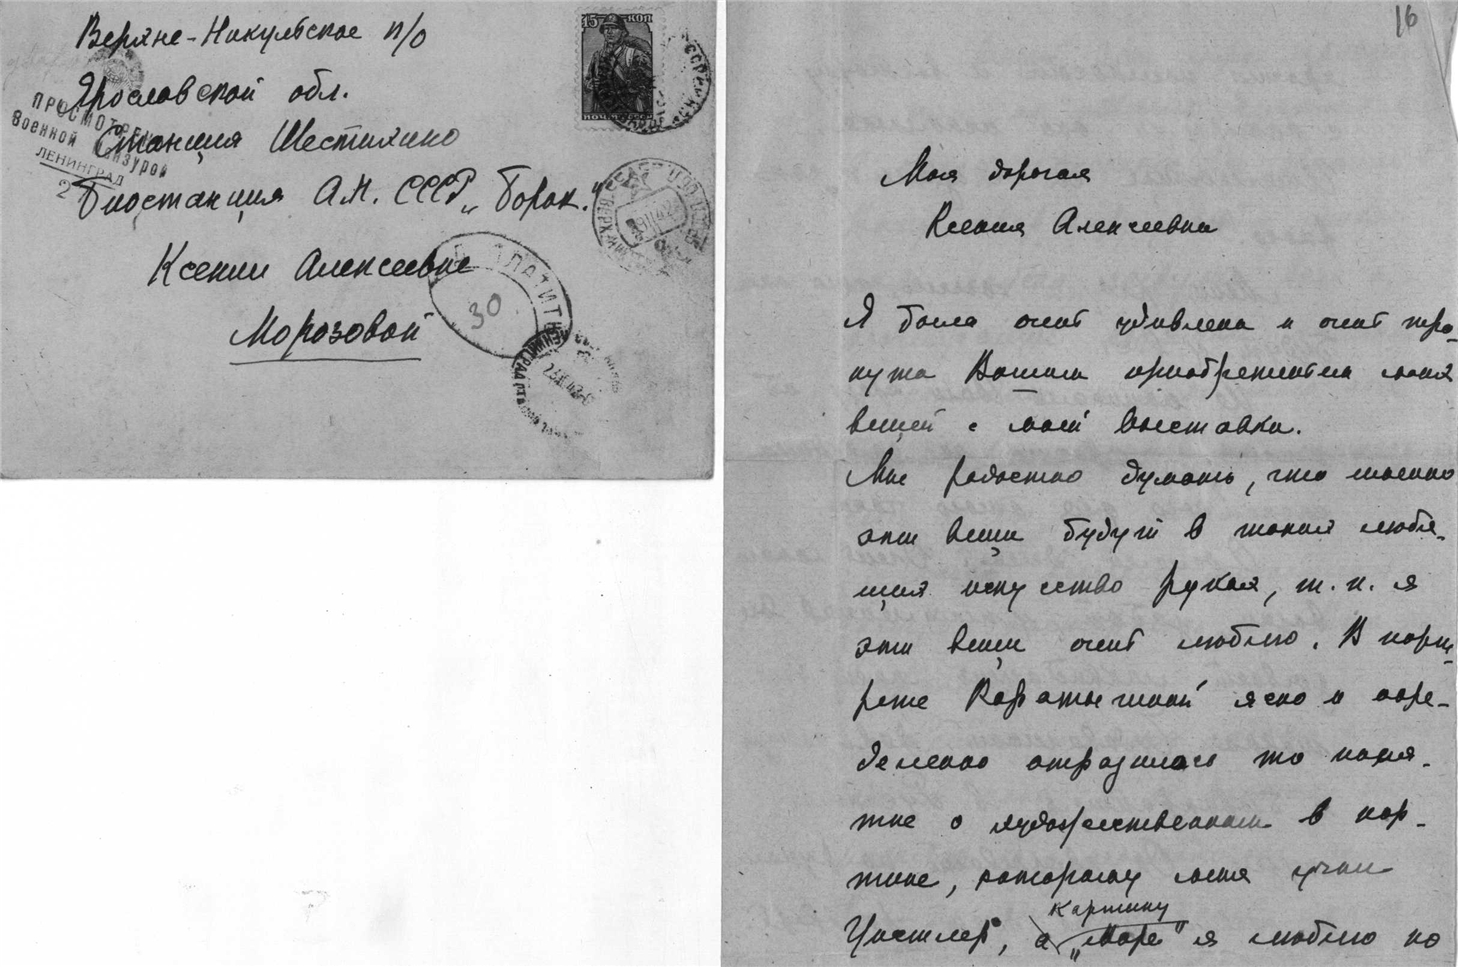 Верхне-Никульское п/о
Ярославской обл.
Станция Шестихино
Биостанция А.Н. СССР „Борок."
Ксении Алексеевне
Морозовой
15 КОП
ПОЧТА СССР
ПРОСМОТРЕНО
Военной Цензурой
ЛЕНИНГРАД
2
ДОПЛАТИТЬ
30
ЛЕНИНГРАД
16
Моя дорогая
Ксения Алексеевна
Я была очень удивлена и очень тро-
нута Вашим приобретением моих
вещей с моей выставки.
Мне радостно думать, что именно
эти вещи будут в таких любя-
щих искусство руках, т.к. я
эти вещи очень люблю. В порт-
рете Каратыгиной ясно и опре-
деленно отразилось то поня-
тие о художественном в кар-
тине, которому меня учил
Уистлер, а картину „Море" я люблю по